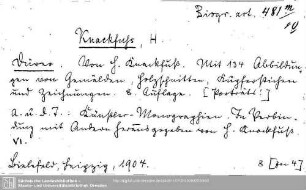 Biogr. art. 481 m
/19
Knackfuss, H.
Dürer. Von H. Knackfuß. Mit 134 Abbildun-
gen von Gemälden, Holzschnitten, Kupferstichen
und Zeichnungen. 8. Auflage. [Porträt!]
A. u. d. T.: Künstler-Monographien. In Verbin-
dung mit Andern herausgegeben von H. Knackfuß.
VI.
Bielefeld, Leipzig, 1904. 8 [on 4]